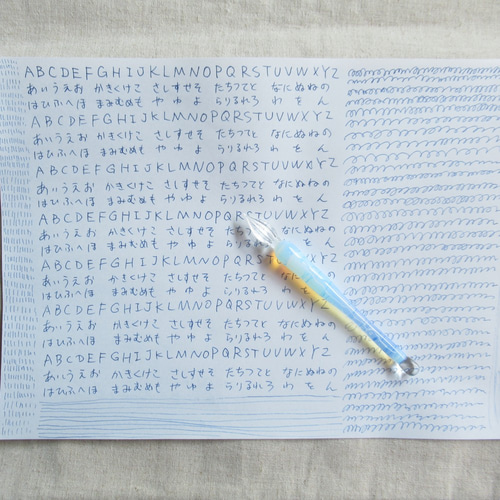 ABCDEFGHIJKLMNOPQRSTUVWXYZ
あいうえお かきくけこ さしすせそ たちつてと なにぬねの
はひふへほ まみむめも や ゆ よ らりるれろ わ を ん
ABCDEFGHIJKLMNOPQRSTUVWXYZ
あいうえお かきくけこ さしすせそ たちつてと なにぬねの
はひふへほ まみむめも や ゆ よ らりるれろ わ を ん
ABCDEFGHIJKLMNOPQRSTUVWXYZ
あいうえお かきくけこ さしすせそ たちつてと なにぬねの
はひふへほ まみむめも や ゆ よ らりるれろ わ を ん
ABCDEFGHIJKLMNOPQRSTUVWXYZ
あいうえお かきくけこ さしすせそ たちつ なにぬねの
はひふへほ まみむめも や ゆ よ らりる わ を ん
ABCDEFGHIJKLMNOPQRSTUVWXYZ
あいうえお かきくけこ さしすせそ たちつてと なにぬねの
はひふへほ まみむめも や ゆ よ らりるれろ を ん
ABCDEFGHIJKLMNOPQRSTUVWXYZ
あいうえお かきくけこ さしすせそ たちつてと なにぬねの
はひふへほ まみむめも や ゆ よ らりるれろ わ を ん
ABCDEFGHIJKLMNOPQRSTUVWXYZ
あいうえお かきくけこ さしすせそ たちつてと なにぬねの
はひふへほ まみむめも や ゆ よ らりるれろ わ を ん